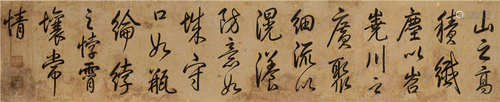 山之高
積纖
塵以岧
嶤川之
廣聚
細流以
滉瀁
防意如
城守
口如瓶
綸綍
之悖霄
壤常
情